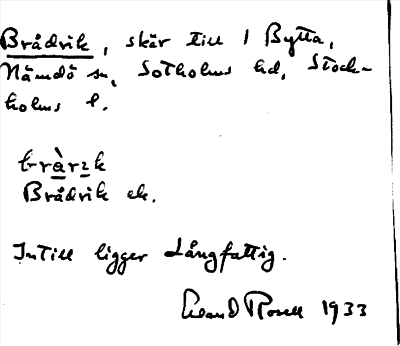 Brådvik, skär till 1 Bytta,
Nämdö sn, Sotholms hd, Stock-
holms l.
Brådvik ek.
Intill ligger Långfattig.
Erland Rosell 1933